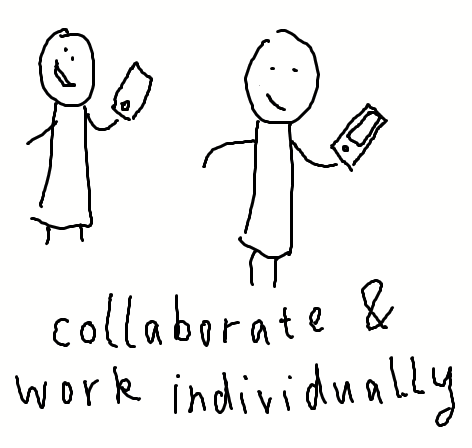 collaborate &
work individually